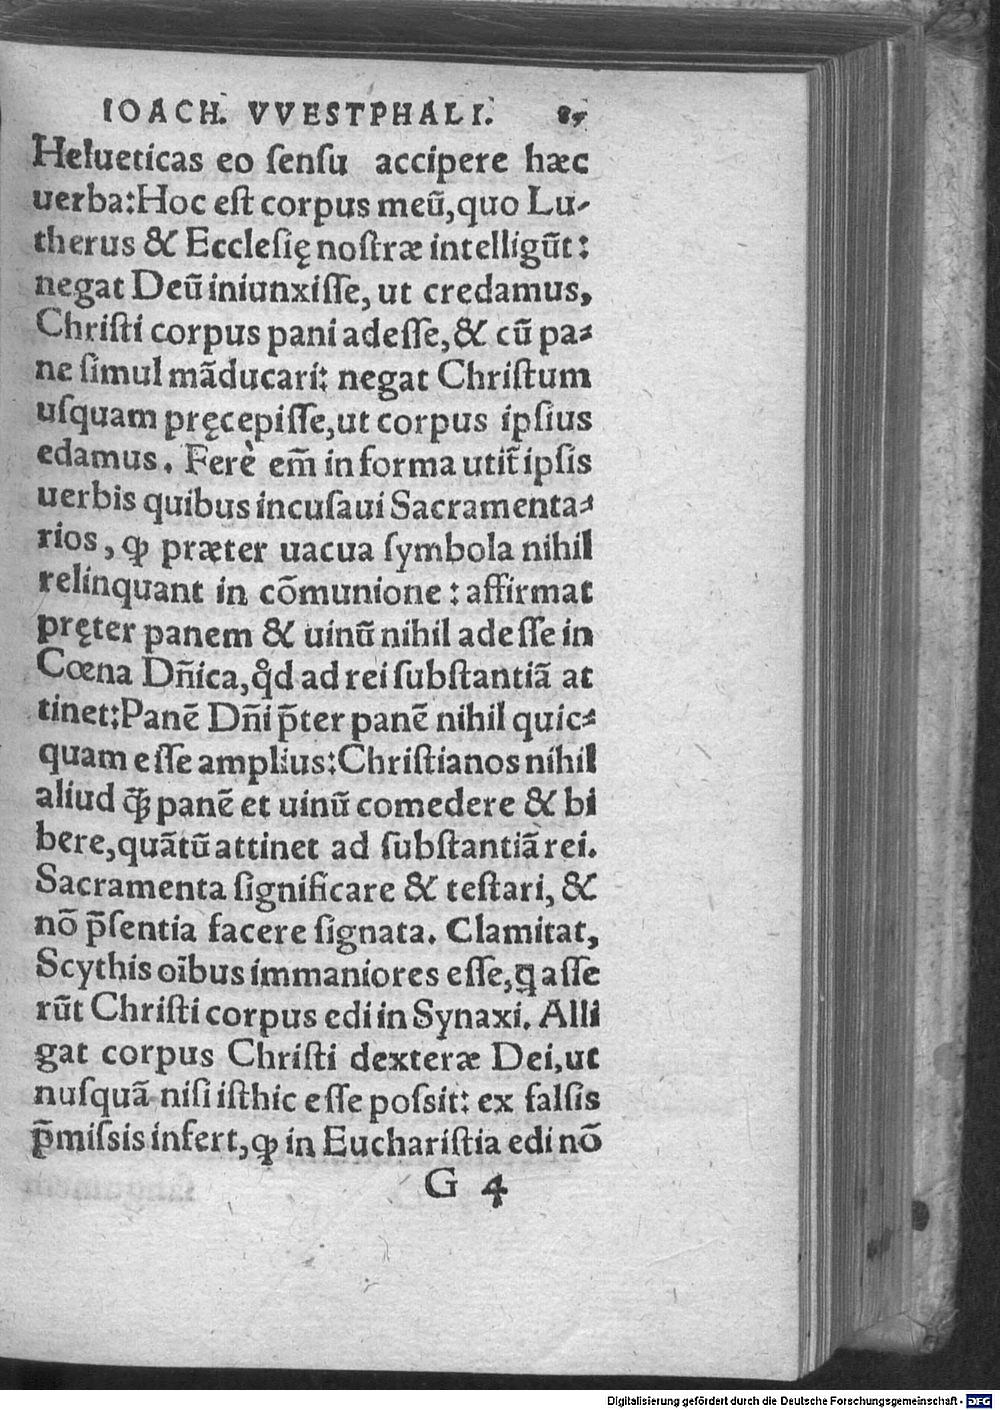 IOACH. VVESTPHALI. 85
Helueticas eo ſenſu accipere hæc
uerba: Hoc eſt corpus meũ, quo Lu-
therus & Eccleſię noſtræ intelligũt:
negat Deũ iniunxiſſe, ut credamus,
Chriſti corpus pani adeſſe, & cũ pa-
ne ſimul mãducari: negat Chriſtum
uſquam pręcepiſſe, ut corpus ipſius
edamus. Ferè em̃ in forma utit̃ ipſis
uerbis quibus incuſaui Sacramenta-
rios, ꝙ præter uacua ſymbola nihil
relinquant in cõmunione: affirmat
pręter panem & uinũ nihil adeſſe in
Cœna Dñica, qd̊ ad rei ſubſtantiã at
tinet: Panẽ Dñi p̃ter panẽ nihil quic-
quam eſſe amplius: Chriſtianos nihil
aliud q̃ꝫ panẽ et uinũ comedere & bi
bere, quãtũ attinet ad ſubſtantiã rei.
Sacramenta ſignificare & teſtari, &
nõ p̃ſentia facere ſignata. Clamitat,
Scythis oĩbus immaniores eſſe, ꝗ aſſe
rũt Chriſti corpus edi in Synaxi. Alli
gat corpus Chriſti dexteræ Dei, ut
nuſquã niſi iſthic eſſe poſsit: ex falſis
p̃miſsis infert, ꝙ in Euchariſtia edi nõ
G 4
Digitalisierung gefördert durch die Deutsche Forschungsgemeinschaft - DFG